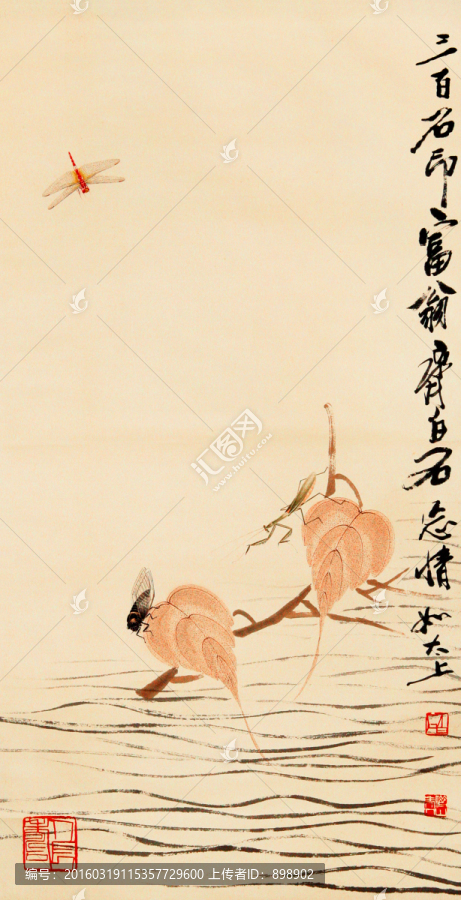 三百石印富翁齊白石忘情如太上
汇图网
www.huitu.com
编号：20160319115357729600 上传者ID：898902